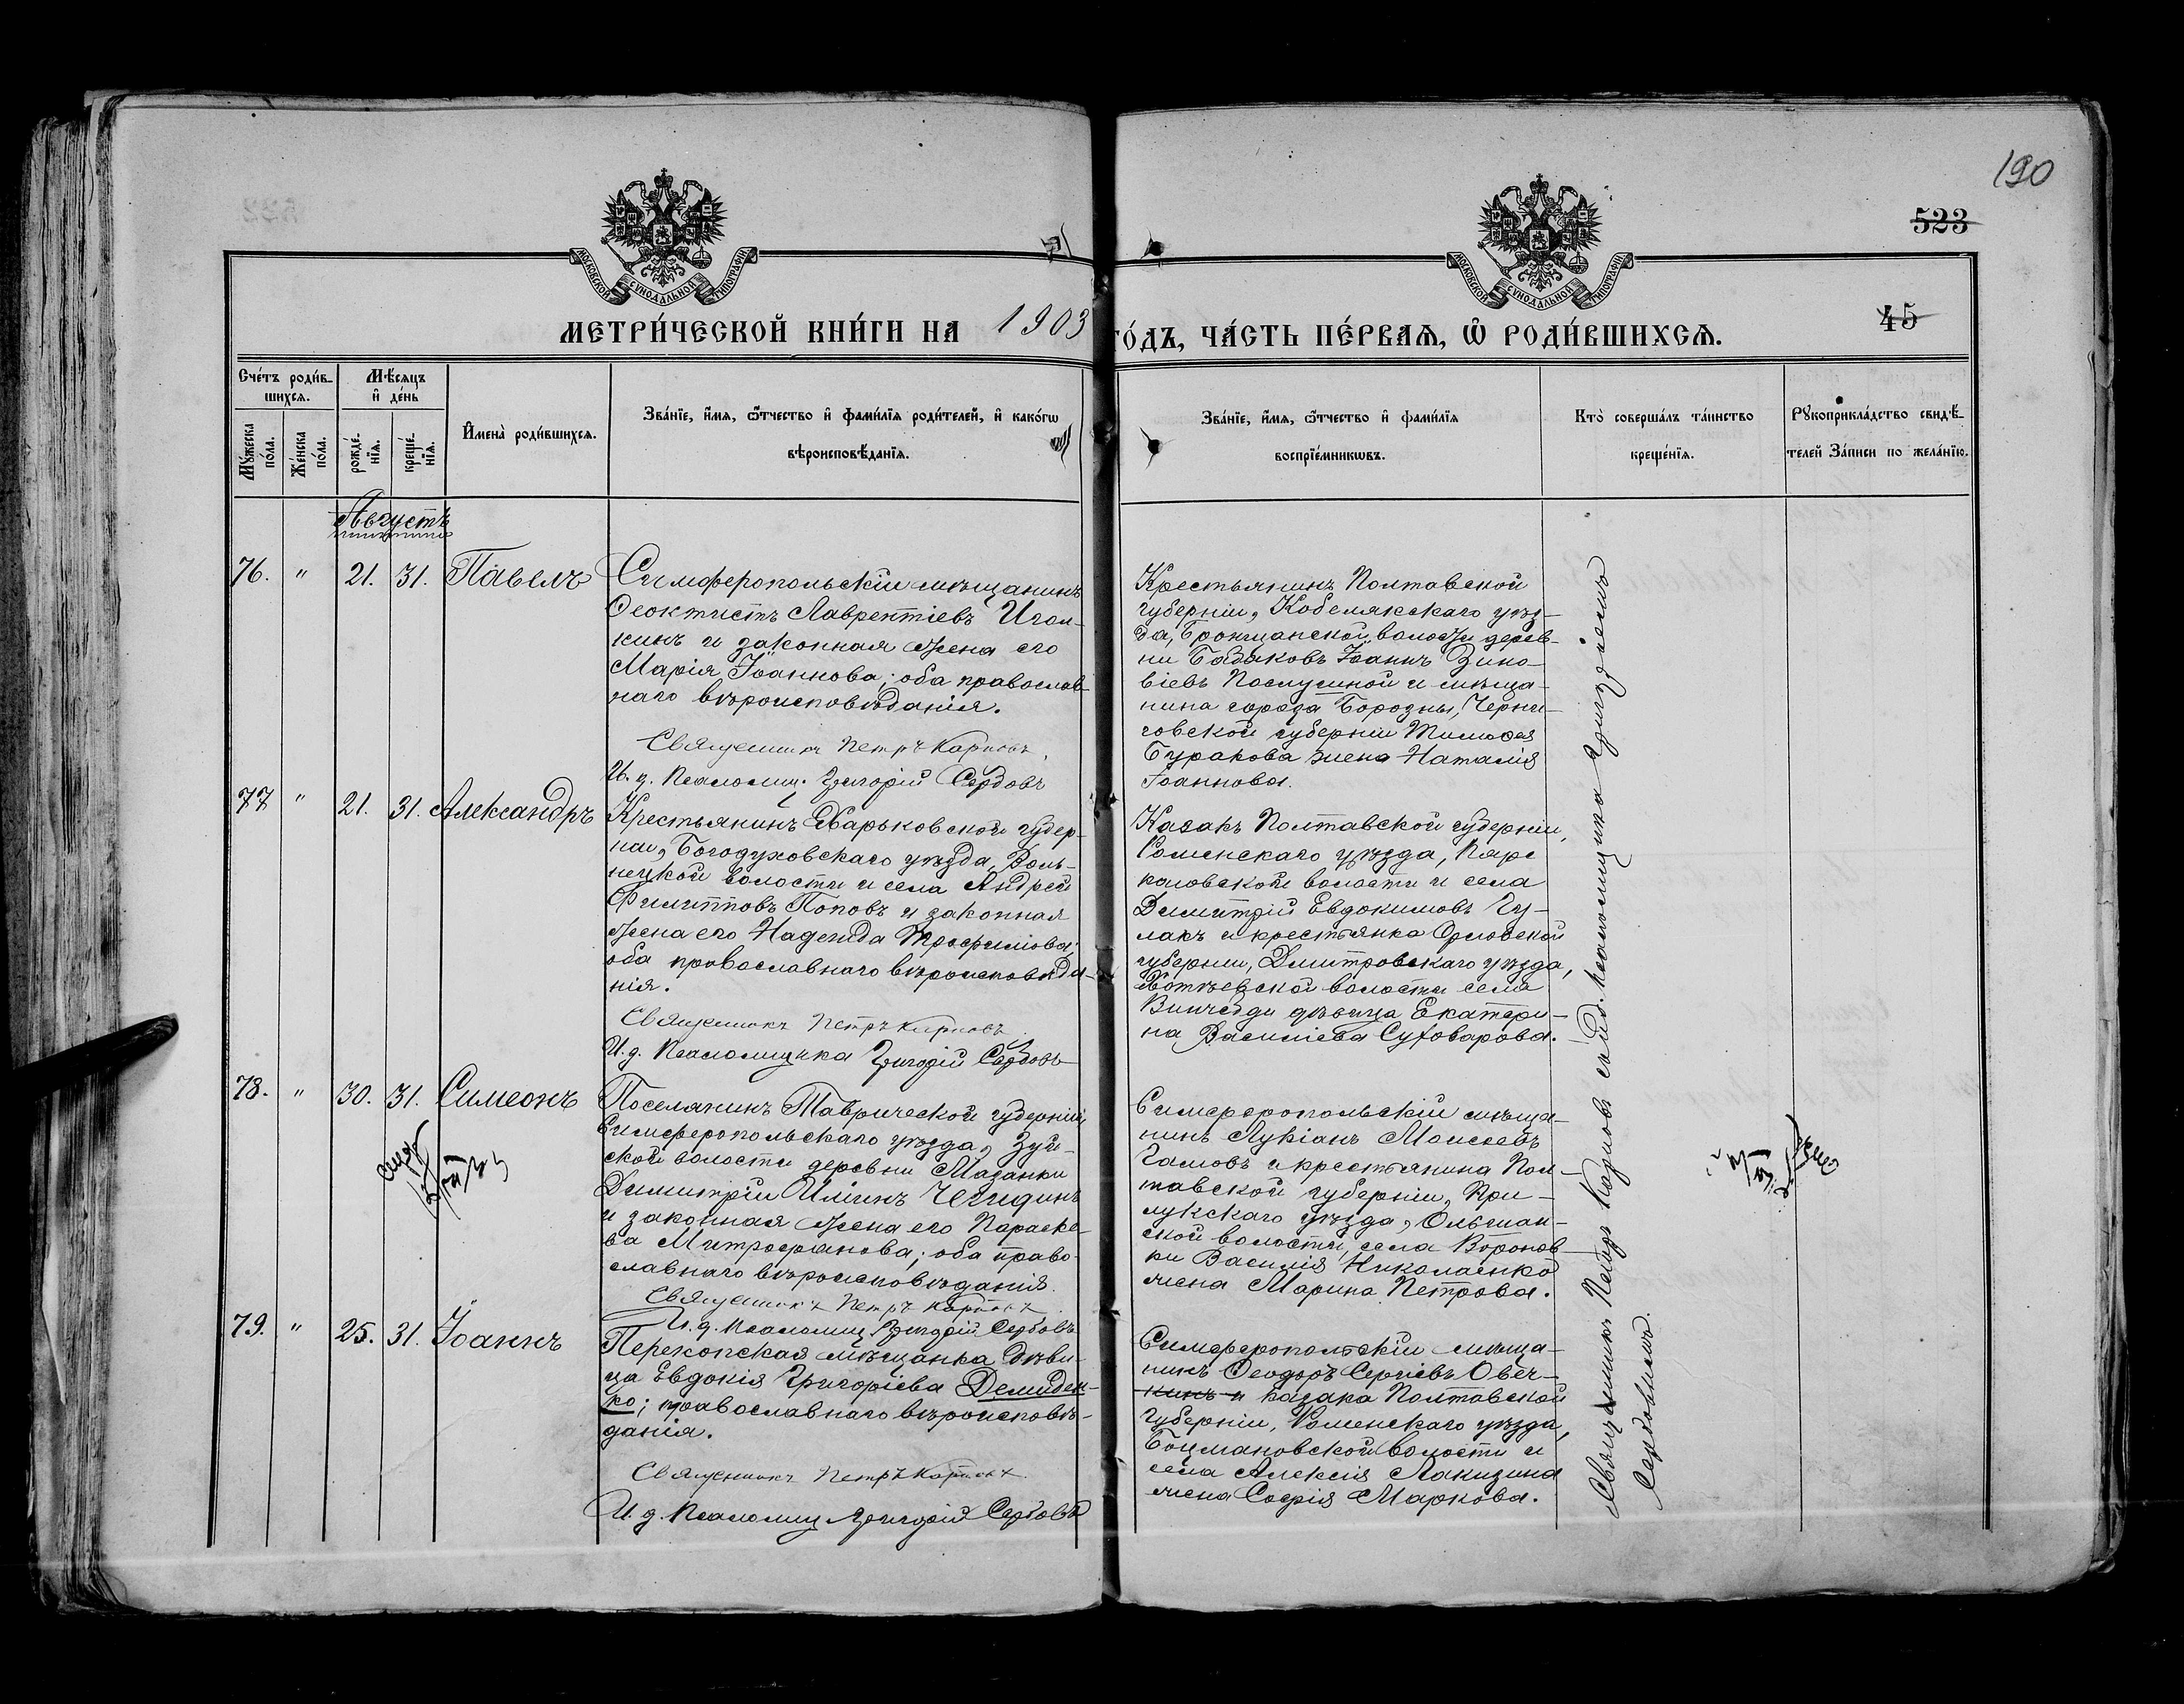 190
523
МОСКОВСКОЙ СѴНОДАЛЬНОЙ ТИПОГРАФІИ
МОСКОВСКОЙ СѴНОДАЛЬНОЙ ТИПОГРАФІИ
МЕТРИ́ЧЕСКОЙ КНИ́ГИ НА 1903 ГО́ДЪ, ЧА́СТЬ ПЕ́РВАЯ, Ѽ РОДИ́ВШИХСЯ.
45
Сче́тъ роди́в-
шихся.
Мѣ́сяцъ
и҆ де́нь
Мꙋ́жеска по́ла.
Же́нска по́ла.
рожде́-
нїя.
креще́-
нїя.
И҆мена̀ роди́вшихся.
Зва́нїе, и҆́мя, ѻ҆́тчество и҆ фами́лїя роди́телей, и҆ како́гѡ
вѣроисповѣ́данїя.
Зва́нїе, и҆́мя, ѻ҆́тчество и҆ фами́лїя
воспрїе́мникѡвъ.
Кто̀ соверша́лъ та́инство
креще́нїя.
Рꙋкоприкла́дство свидѣ́-
телей За́писи по жела́нїю.
Августъ
76. " 21. 31. Павелъ
Симферопольскій мѣщанинъ
Ѳеоктистъ Лаврентіевъ Игол-
кинъ и законная жена его
Марія Іоаннова; оба православ-
наго вѣроисповѣданія.
Священникъ Петръ Карповъ.
И. д. Псаломщ. Григорій Сербовъ
Крестьянинъ Полтавской
губерніи, Кобелякскаго уѣз-
да, волости дерев-
ни Іоаннъ Зино-
віевъ и мѣща-
нина города Борозны, Черни-
говской губерніи
Буракова жена Наталія
Іоаннова.
77 " 21. 31. Александръ
Крестьянинъ Харьковской губер-
ніи, Богодуховскаго уѣзда, Воль-
нецкой волости и села Андрей
Филипповъ Поповъ и законная
жена его Надежда Трофимова;
оба православнаго вѣроисповѣда-
нія.
Священникъ Петръ Карповъ.
И. д. Псаломщика Григорій Сербовъ
Казакъ Полтавской губерніи,
Роменскаго уѣзда,
волости и села
Димитрій Евдокимовъ Гу-
лакъ и крестьянка Орловской
губерніи, Дмитровскаго уѣзда,
волости села
дѣвица Екатери-
на Василіева Суховарова.
78. " 30. 31. Симеонъ
Поселянинъ Таврической губерніи,
Симферопольскаго уѣзда, Зуй-
ской волости деревни Мазанки
Димитрій Иліинъ
и законная жена его Параске-
ва Митрофанова; оба право-
славнаго вѣроисповѣданія.
Священникъ Петръ Карповъ.
И. д. Псаломщ. Григорій Сербовъ
Симферопольскій мѣща-
нинъ Лукіанъ Моисеевъ
и крестьянина Пол-
тавской губерніи, При-
лукскаго уѣзда, Ольшан-
ской волости, села Воронов-
ки Василія Николаенко
жена Марина Петрова.
79. " 25. 31. Іоаннъ
Перекопская мѣщанка дѣви-
ца Евдокія Григоріева Демиден-
ко; православнаго вѣроисповѣ-
данія.
Священникъ Петръ Карповъ.
И. д. Псаломщ. Григорій Сербовъ
Симферопольскій мѣща-
нинъ Ѳеодоръ Сергіевъ Овеч-
кинъ и казака Полтавской
губерніи, Роменскаго уѣзда,
волости и
села Алексія Лакизина
жена Софія Маркова.
Священникъ Петръ Карповъ съ и.д. псаломщика Григоріемъ
Сербовымъ.